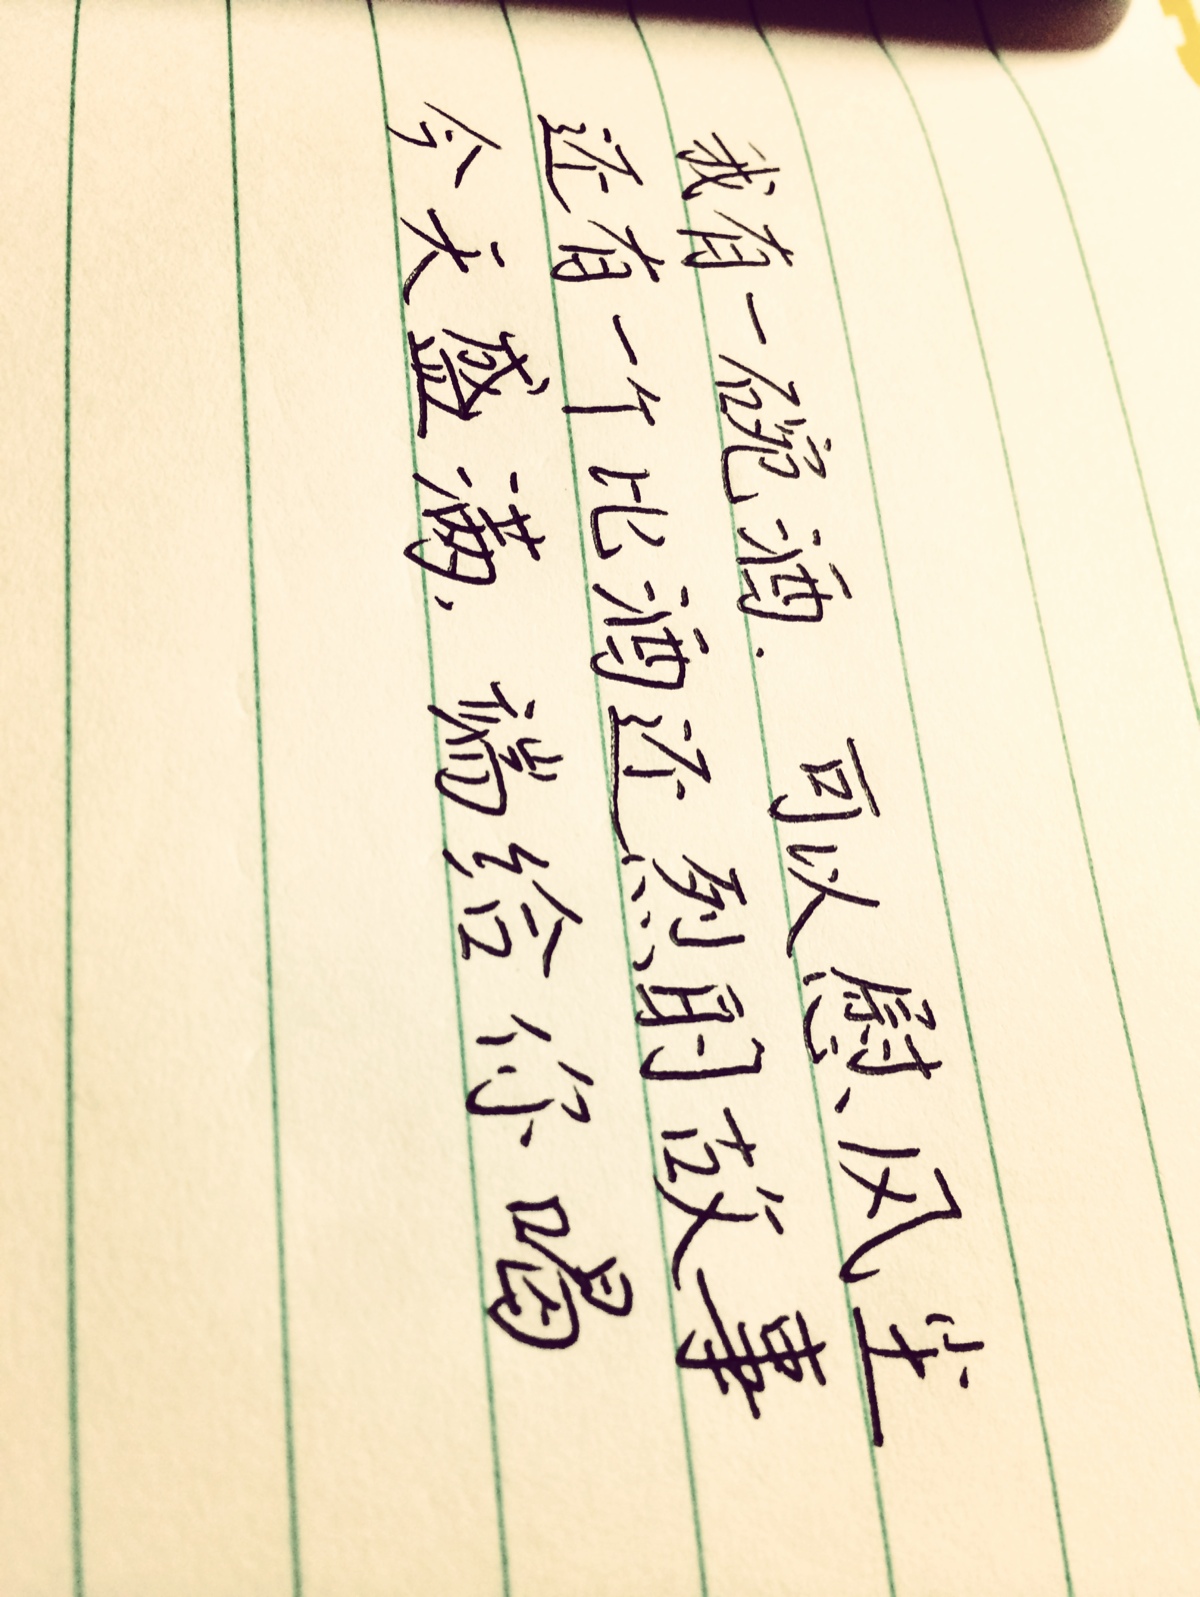 我有一碗酒. 可以慰风尘
还有一个比酒还烈的故事
今天盛满, 端给你喝